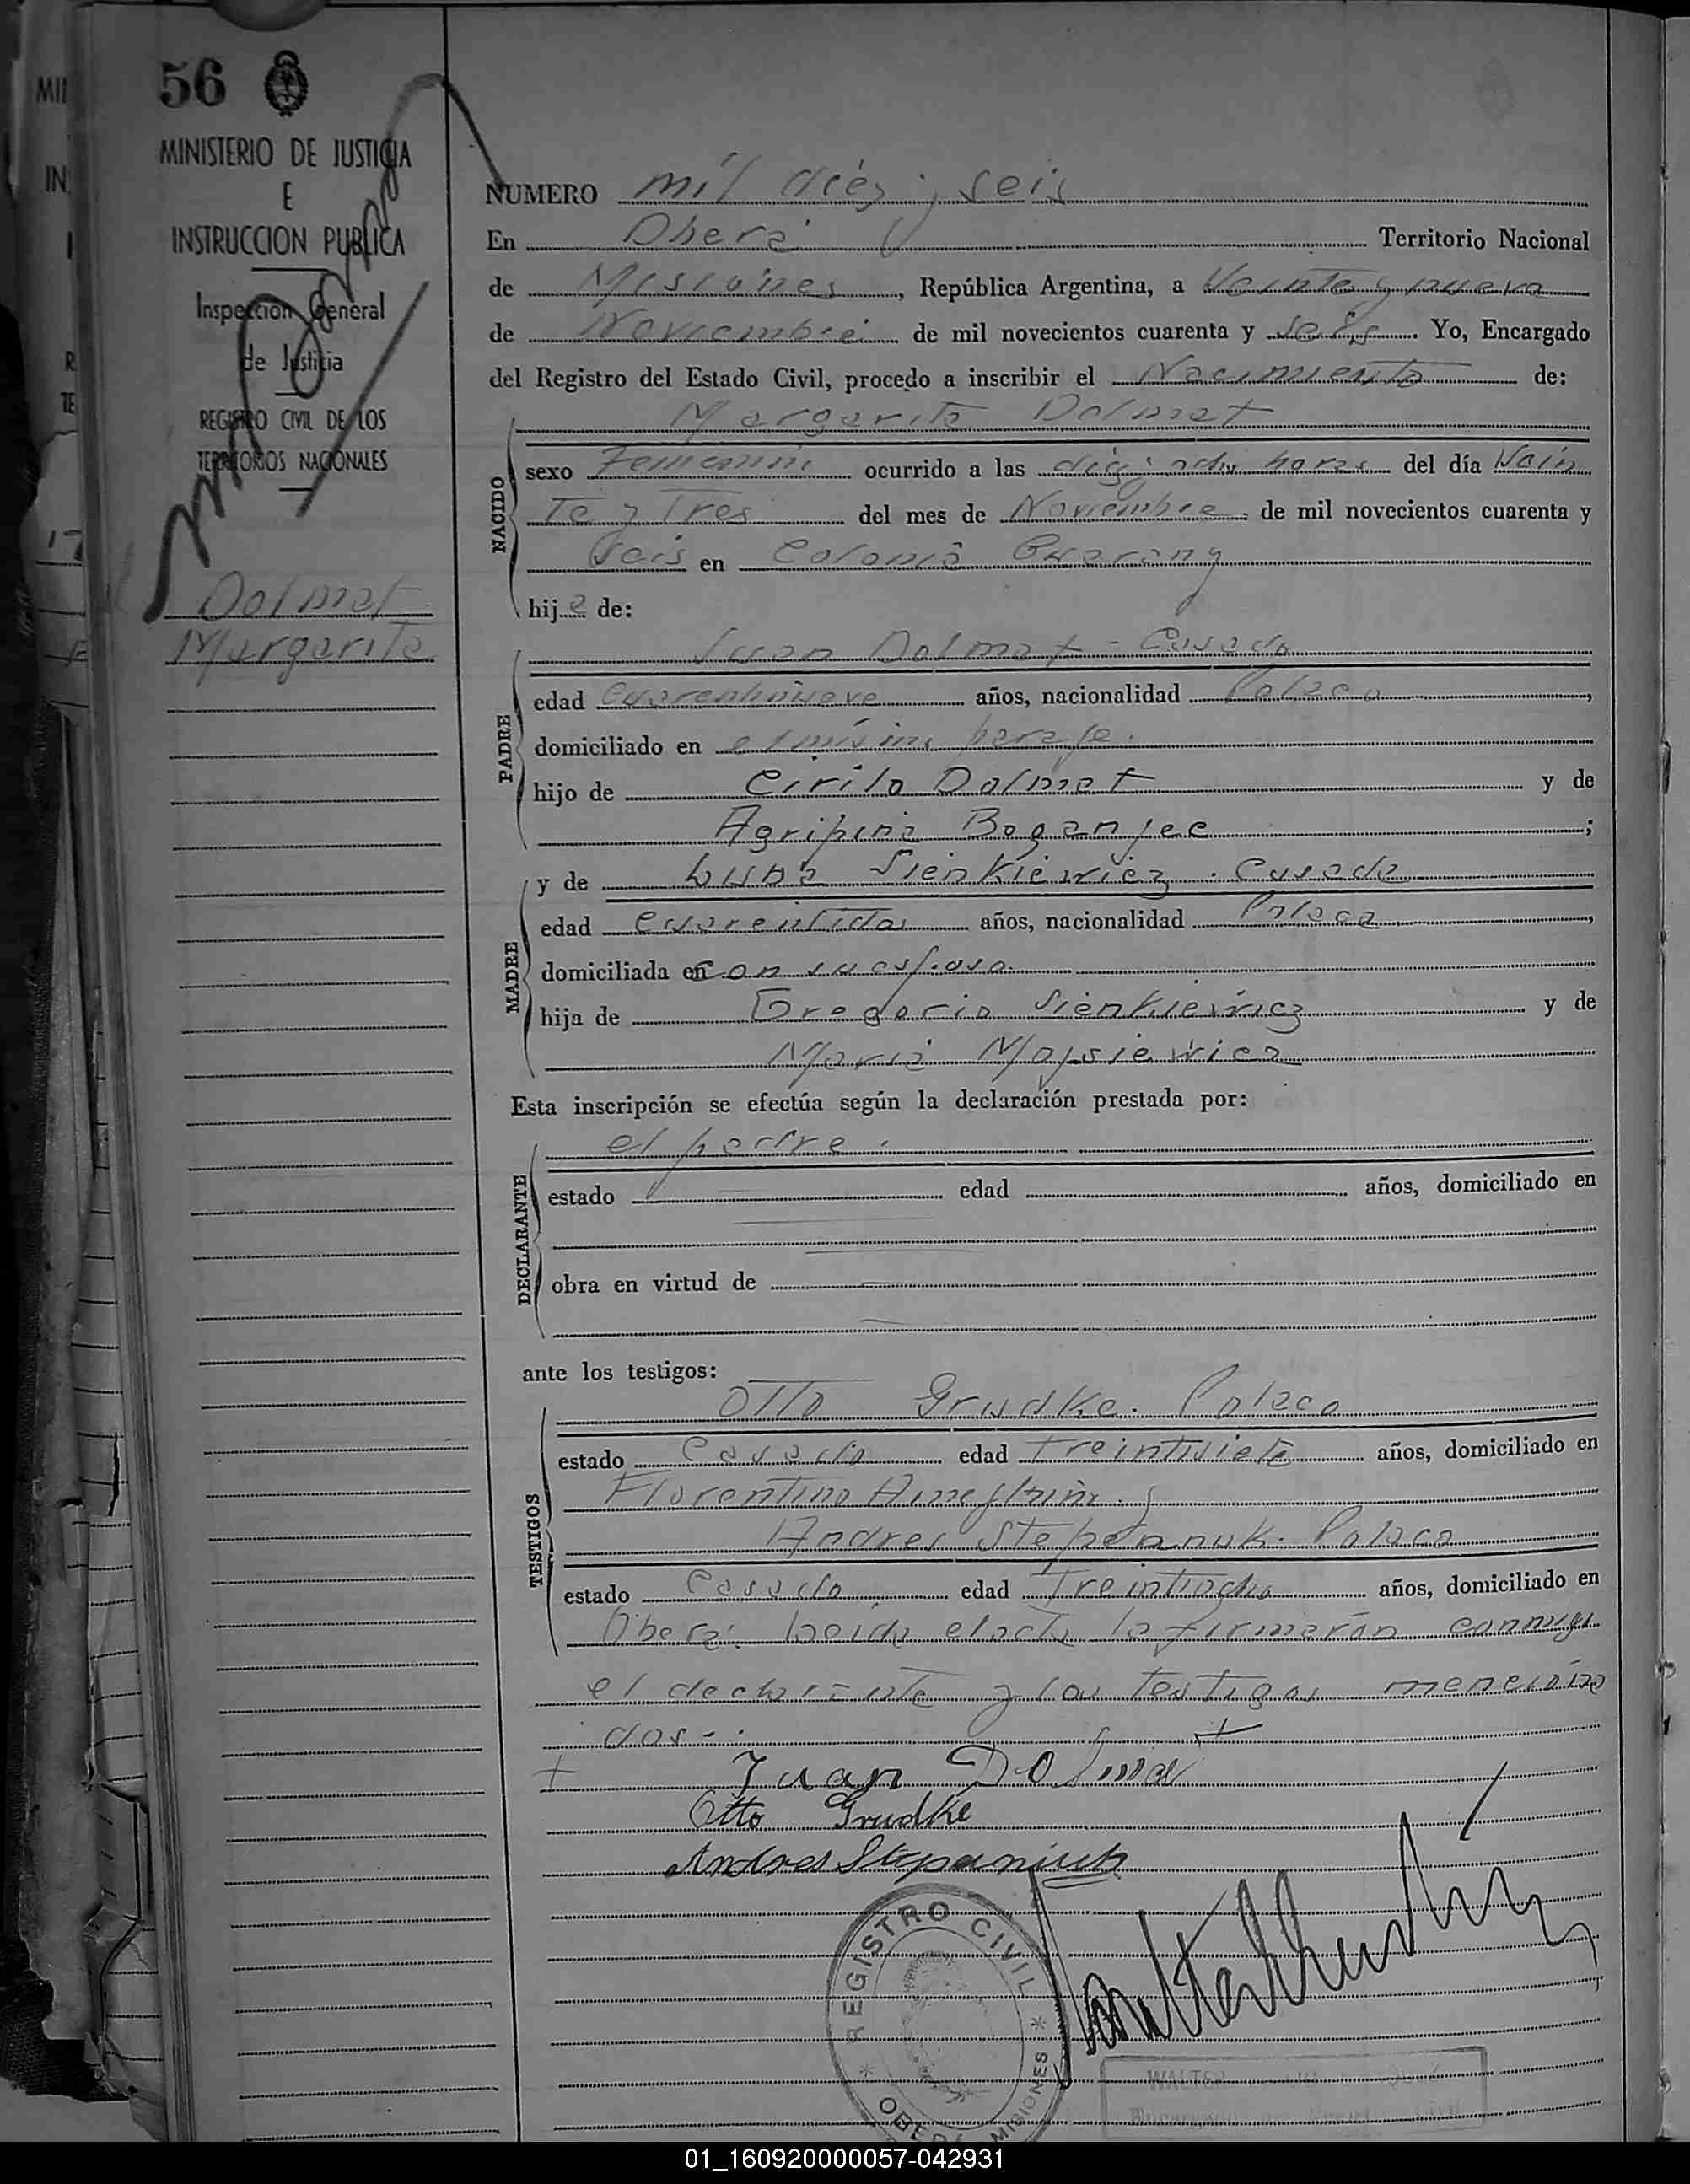 56
MINISTERIO DE JUSTICIA
E
INSTRUCCION PUBLICA
Inspección General
de Justicia
REGISTRO CIVIL DE LOS
TERRITORIOS NACIONALES
Dolmat
Margarita
NUMERO mil diéz y seis
En Oberá Territorio Nacional
de Misiones, República Argentina, a Veinte y nueve
de Noviembre de mil novecientos cuarenta y seis. Yo, Encargado
del Registro del Estado Civil, procedo a inscribir el Nacimiento de:
Margarita Dolmat
NACIDO
sexo Femenino ocurrido a las diéz y ocho horas del día Vein
te y Tres del mes de Noviembre de mil novecientos cuarenta y
seis en Colonia Guarany
hija de:
Juan Dolmat - Casado
PADRE
edad cuarentinueve años, nacionalidad Polaco,
domiciliado en el mismo paraje.
hijo de Cirilo Dolmat y de
Agripina ;
y de Sienkiewicz. Casada
MADRE
edad cuarentidos años, nacionalidad Polaca,
domiciliada en con su esposo.
hija de Gregorio Sienkiewicz y de
Maria Mojsiewicz
Esta inscripción se efectúa según la declaración prestada por:
el padre.
DECLARANTE
estado edad años, domiciliado en
obra en virtud de
ante los testigos:
Otto Grudke. Polaco
TESTIGOS
estado Casado edad treintisiete años, domiciliado en
Florentino Ameghino. y
Andres Stepannuk. Polaco
estado Casado edad treintiocho años, domiciliado en
Oberá. Leida el acta la firmarón conmigo
el declarante y los testigos menciona
dos.-
+ Juan Dolmat +
Otto Grudke
Andres Stepaniuk
REGISTRO CIVIL
OBERÁ MISIONES
WALTER
01_160920000057-042931